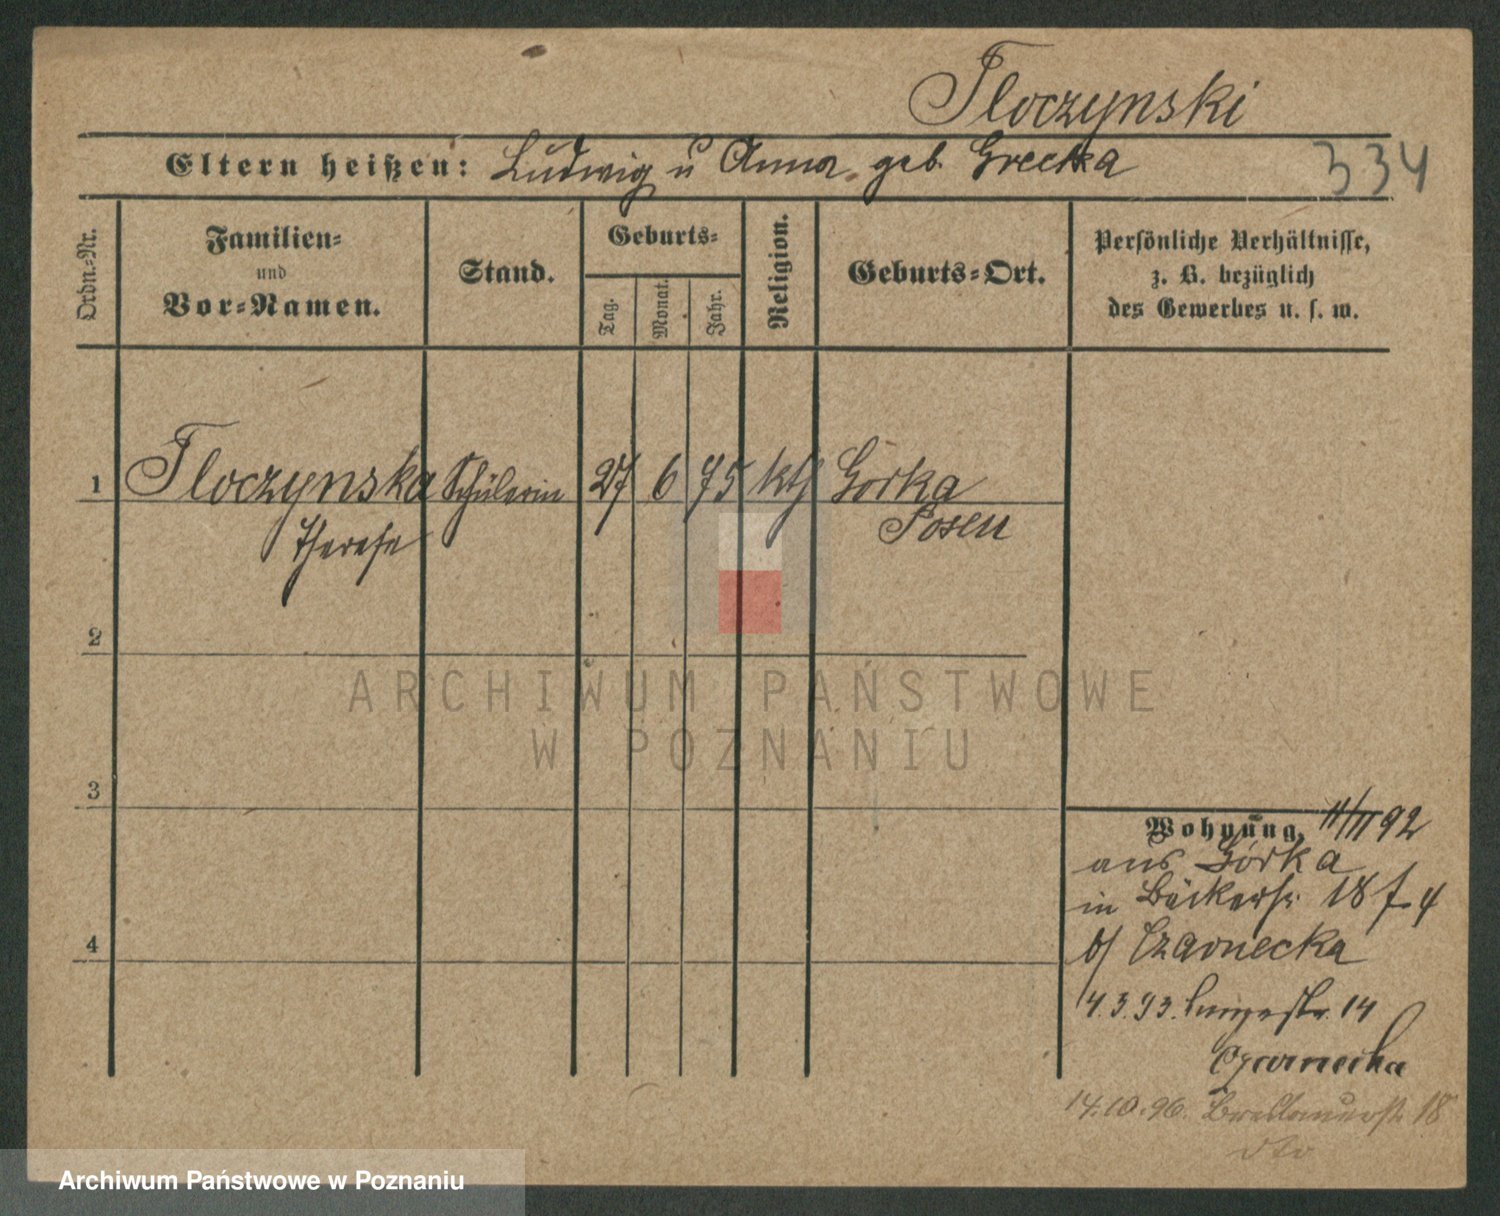 Tloczynski
Eltern heißen: Ludwig u Anna geb. Grecka
334
Ordn.-Nr.
Familien-
und
Vor-Namen.
Stand.
Geburts-
Tag.
Monat.
Jahr.
Religion.
Geburts-Ort.
Persönliche Verhältnisse,
z. B. bezüglich
des Gewerbes u. s. w.
1 Tloczynska Schülerin 27 6 75 kth Górka
Therese Posen
2
3
4
Wohnung. 11/11 92
aus Górka
in Bäckerstr. 18 f. 4
b/ Czarnecka
4.3.93. Langestr. 14
Czarnecka
14.10.96. Breslauerstr. 18
dto
ARCHIWUM PAŃSTWOWE
W POZNANIU
Archiwum Państwowe w Poznaniu